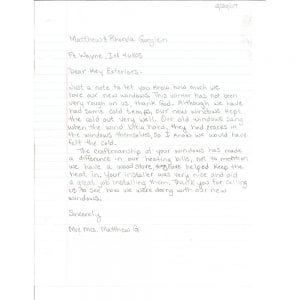 2/20/07
Matthew & Rhonda
Ft. Wayne, Ind 46805
Dear Hey Exteriors:
Just a note to let you know how much we
love our new windows. This winter has not been
very rough on us, thank God. Although we have
had some cold temps, our new windows kept
the cold out very well. Our old windows sang
when the wind blew hard, they had spaces in
the windows themselves so I know we would have
felt the cold.
The craftsmanship of your windows has made
a difference in our heating bills, not to mention
we have a woodstove, helped keep the
heat in. Your installer was very nice and did
a great job installing them. Thank you for calling
us to see how we were doing with our new
windows.
Sincerely
Mr & Mrs. Matthew G